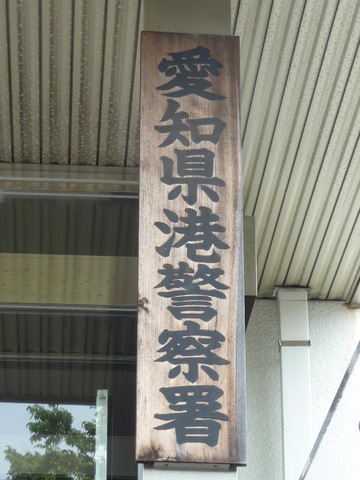 愛知県港警察署